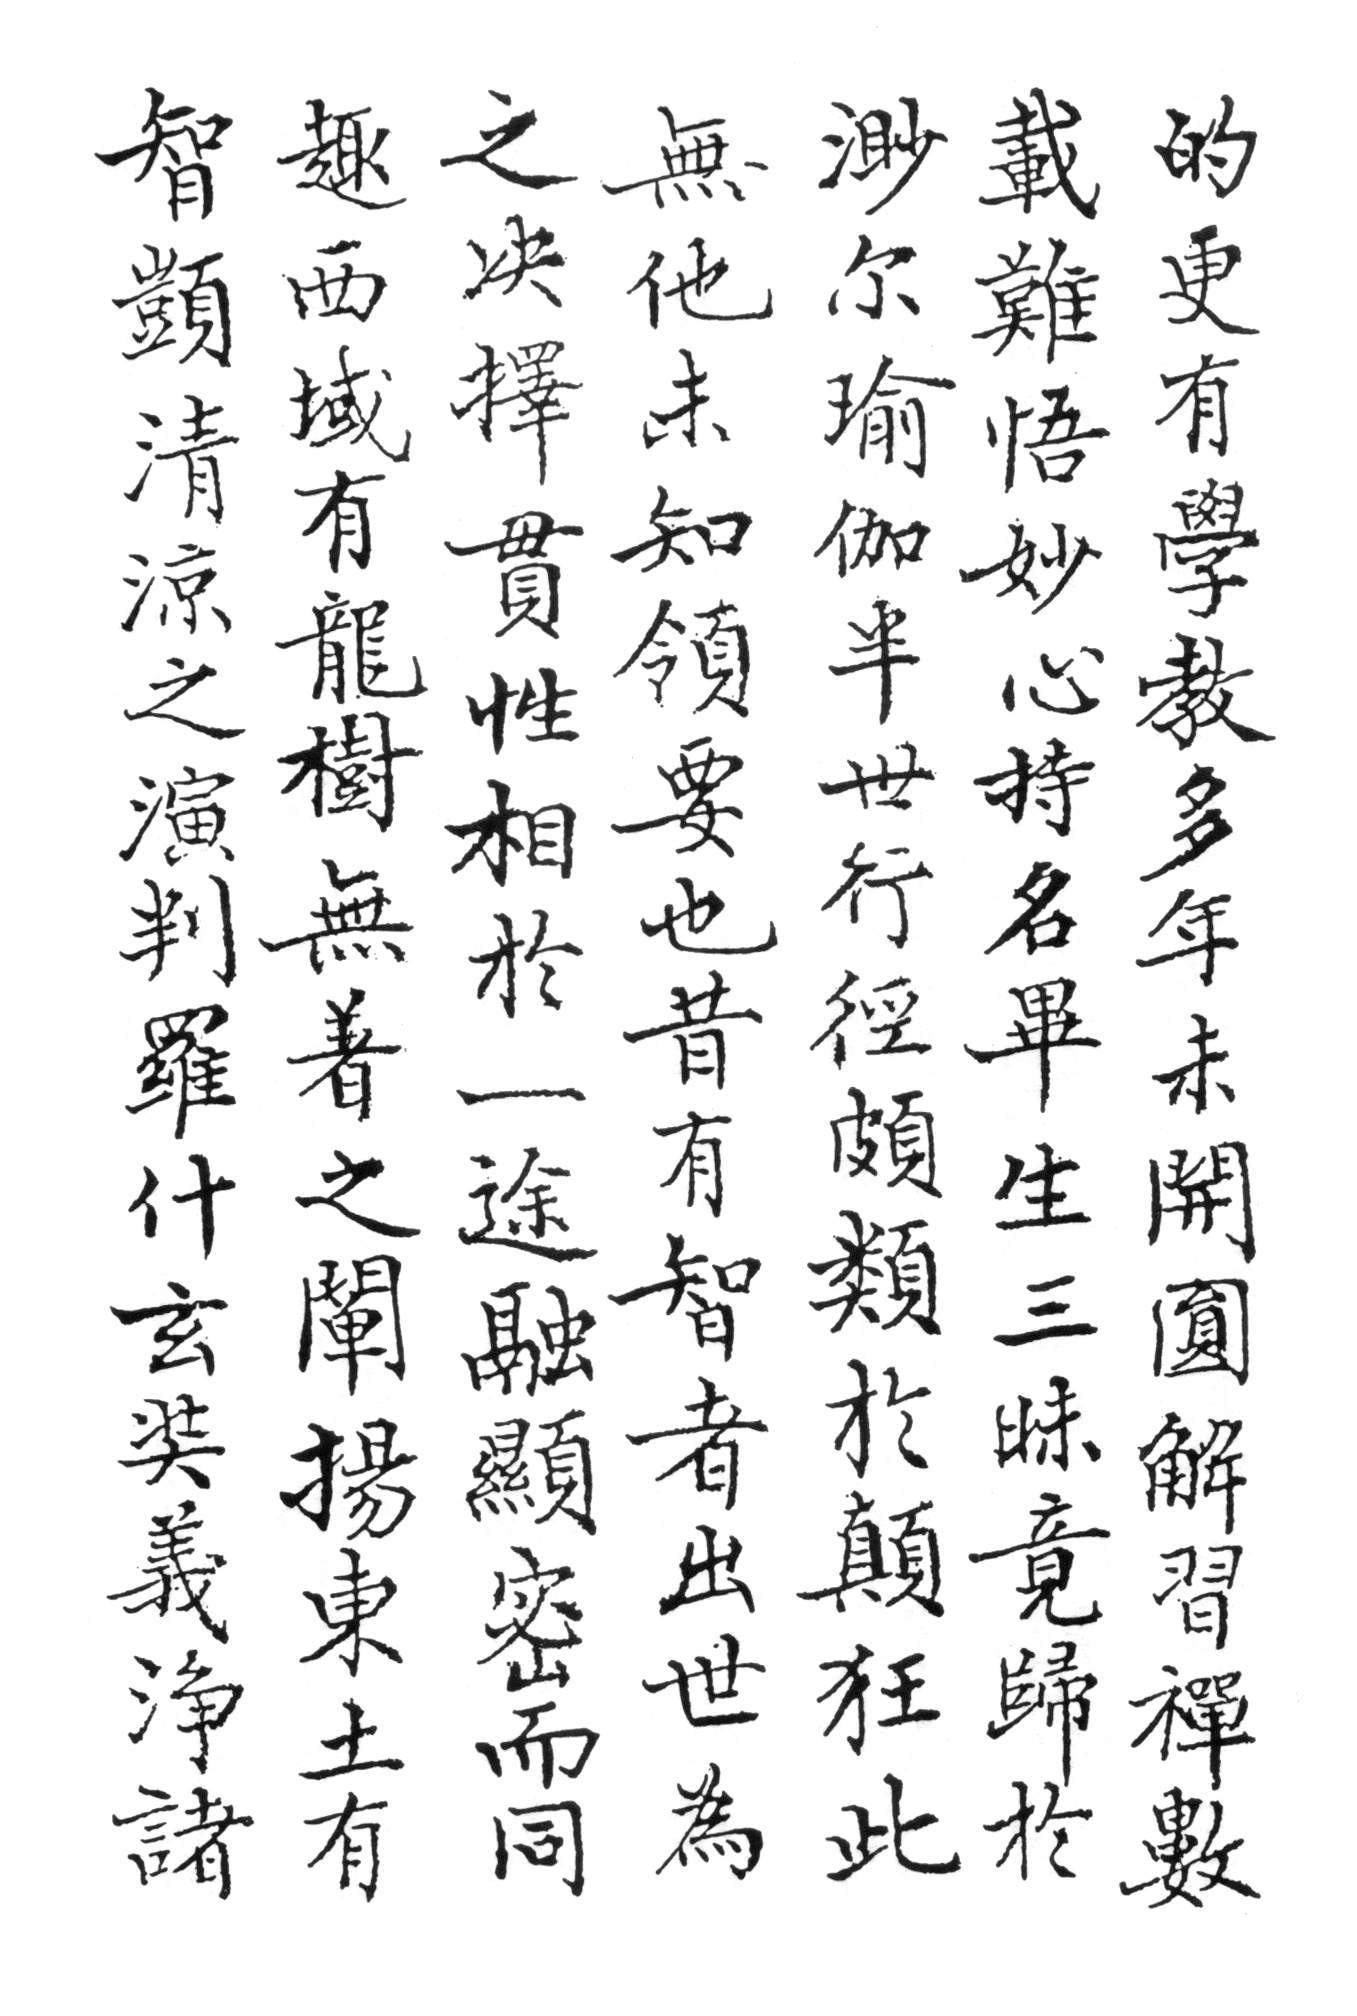 的更有學教多年未開圓解習禪數
載難悟妙心持名畢生三昧竟歸於
渺尔瑜伽半世行徑頗類於顛狂此
無他未知領要也昔有智者出世為
之决擇貫性相於一途融顯密而同
趣西域有龍樹無著之闡揚東土有
智顗清涼之演判羅什玄奘義淨諸